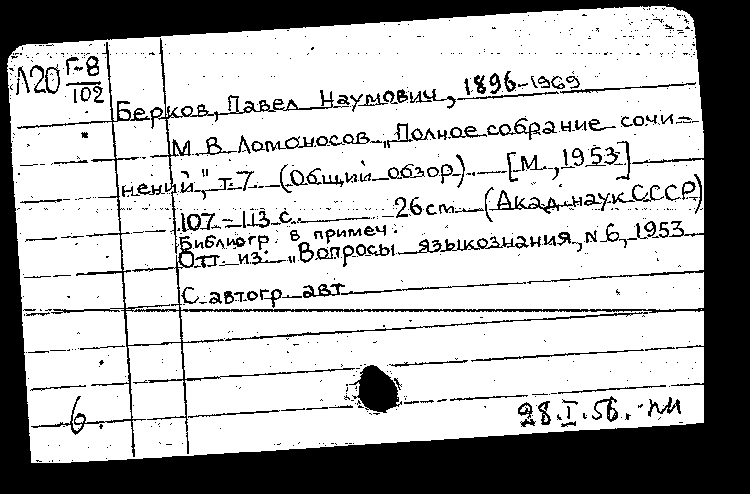 Л20 Г-8
102
Берков, Павел Наумович, 1896-1969
М. В. Ломоносов „Полное собрание сочи-
нений," т. 7. (Общий обзор). [М., 1953]
107-113 с. 26 cm (Акад. наук СССР)
Библиогр. в примеч.
Отт. из: „Вопросы языкознания, N 6, 1953
С автогр. авт.
6.
28.I.56.